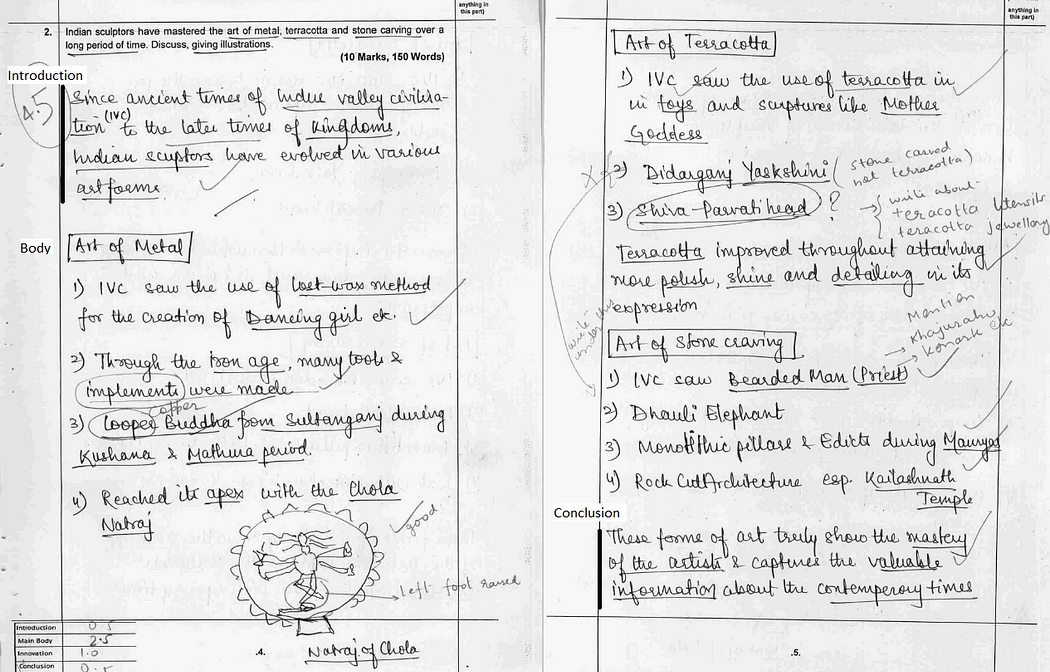 anything in
this part)
2. Indian sculptors have mastered the art of metal, terracotta and stone carving over a
long period of time. Discuss, giving illustrations.
(10 Marks, 150 Words)
Introduction
4.5
Since ancient times of Indus valley civiliza-
tion (IVC) to the later times of Kingdoms,
Indian scuptors have evolved in various
art forms.
Body
Art of Metal
1) IVC saw the use of lost-wax method
for the creation of Dancing girl etc.
2) Through the Iron age, many tools &
implements were made
copper
3) Cooper Buddha from Sultanganj during
Kushana & Mathura period.
4) Reached its apex with the Chola
Natraj
good
left foot raised
Natraj of Chola
Introduction 0.5
Main Body 2.5
Innovation 1.0
Conclusion 0.5
.4.
anything in
this part)
Art of Terracotta
1) IVC saw the use of terracotta in
in toys and scuptures like Mother
Goddess
2) Didarganj Yaskshini (stone carved
not terracotta)
3) Shiva-Parvati head ?
→ write about
teracotta utensils
teracotta jewellery
Terracotta improved throughout attaining
more polish, shine and detailing in its
expression
write
under this
Art of Stone craving
→ Khajuraho
→ Konark etc
1) IVC saw Bearded Man (Priest)
2) Dhauli Elephant
3) Monotithic pillars & Edicts during Mauryas
4) Rock Cut Architecture esp. Kailashnath
Temple
Conclusion
These forms of art truly show the mastery
of the artists & captures the valuable
information about the contemporary times
.5.